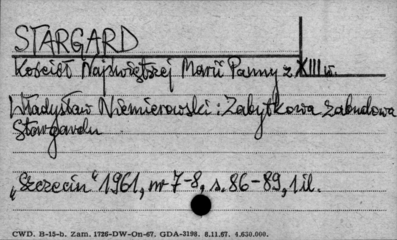 STARGARD
Kościół Najświętszej Marii Panny z XIII w.
Władysław Niemierowski: Zabytkowa zabudowa
Stargardu
„Szczecin“ 1961, nr 7-8, s. 86-89, 1 il.
CWD. B-15-b. Zam. 1726-DW-On-67. GDA-3198. 8.11.67. 4.630.000.